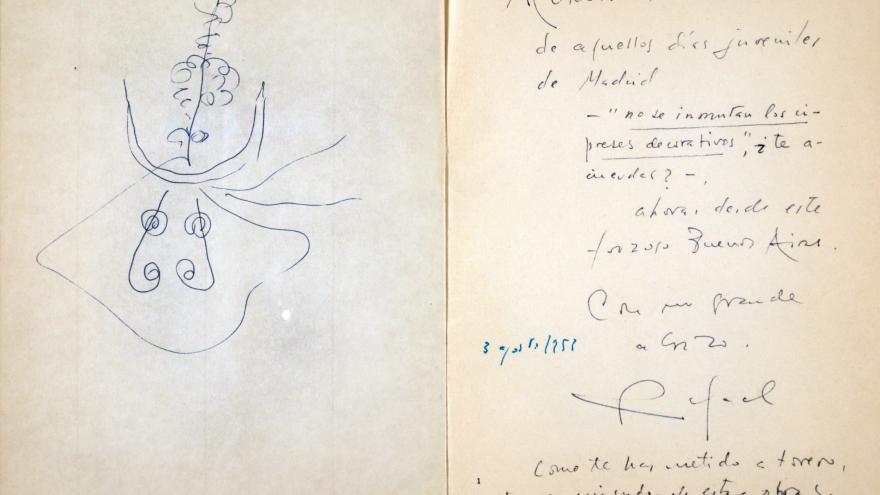 de aquellos días juveniles
de Madrid
–"no se inmutan los ci-
preses decorativos", ¿te a-
cuerdas? –,
ahora, desde este
forzoso Buenos Aires.
Con un grande
abrazo.
3 agosto/1953
Rafael
Como te has metido a torero,
de esta obra
1